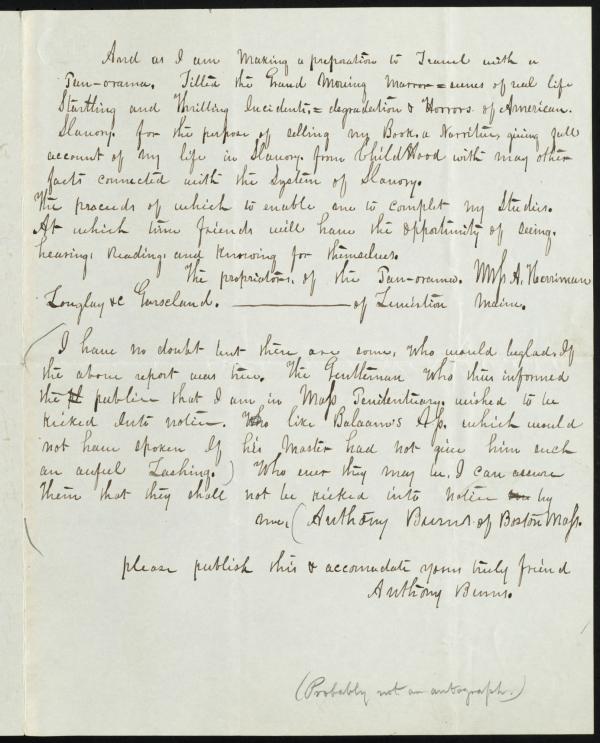 And as I am Making a preparation to Travel with a
Pan-orama. Titled the Grand Moving Mirror = scenes of real life
Startling and Thrilling Incidents, = degradation & Horrors of American.
Slavery. for the purpose of selling my Book, a Narritive, giving full
account of my life in Slavery. from ChildHood with many other
facts connected with the System of Slavery.
The proceeds of which to enable me to complet my Studies.
At which time friends will have the opportunity of seeing.
hearing, Reading, and Knowing for themselves.
The propriators, of the Pan-orama. Mess A. Herriman
Longley &c Garseland. ——— of Lewistion Maine.
I have no doubt but there are some, who would beglad, If
the above report was true. The Gentleman who thus informed
the publice that I am in Mass Penitentuary. wished to be
kicked Into notice. Who like Balaam's Ass. which would
not have spoken If his Master had not give him such
an awful Lashing.) Who ever they may be, I can assure
them that they shall not be kicked into notice by
me, (Anthony Burns of Boston Mass.
please publish this & accomadate yours truly friend
Anthony Burns.
(Probably not an autograph.)